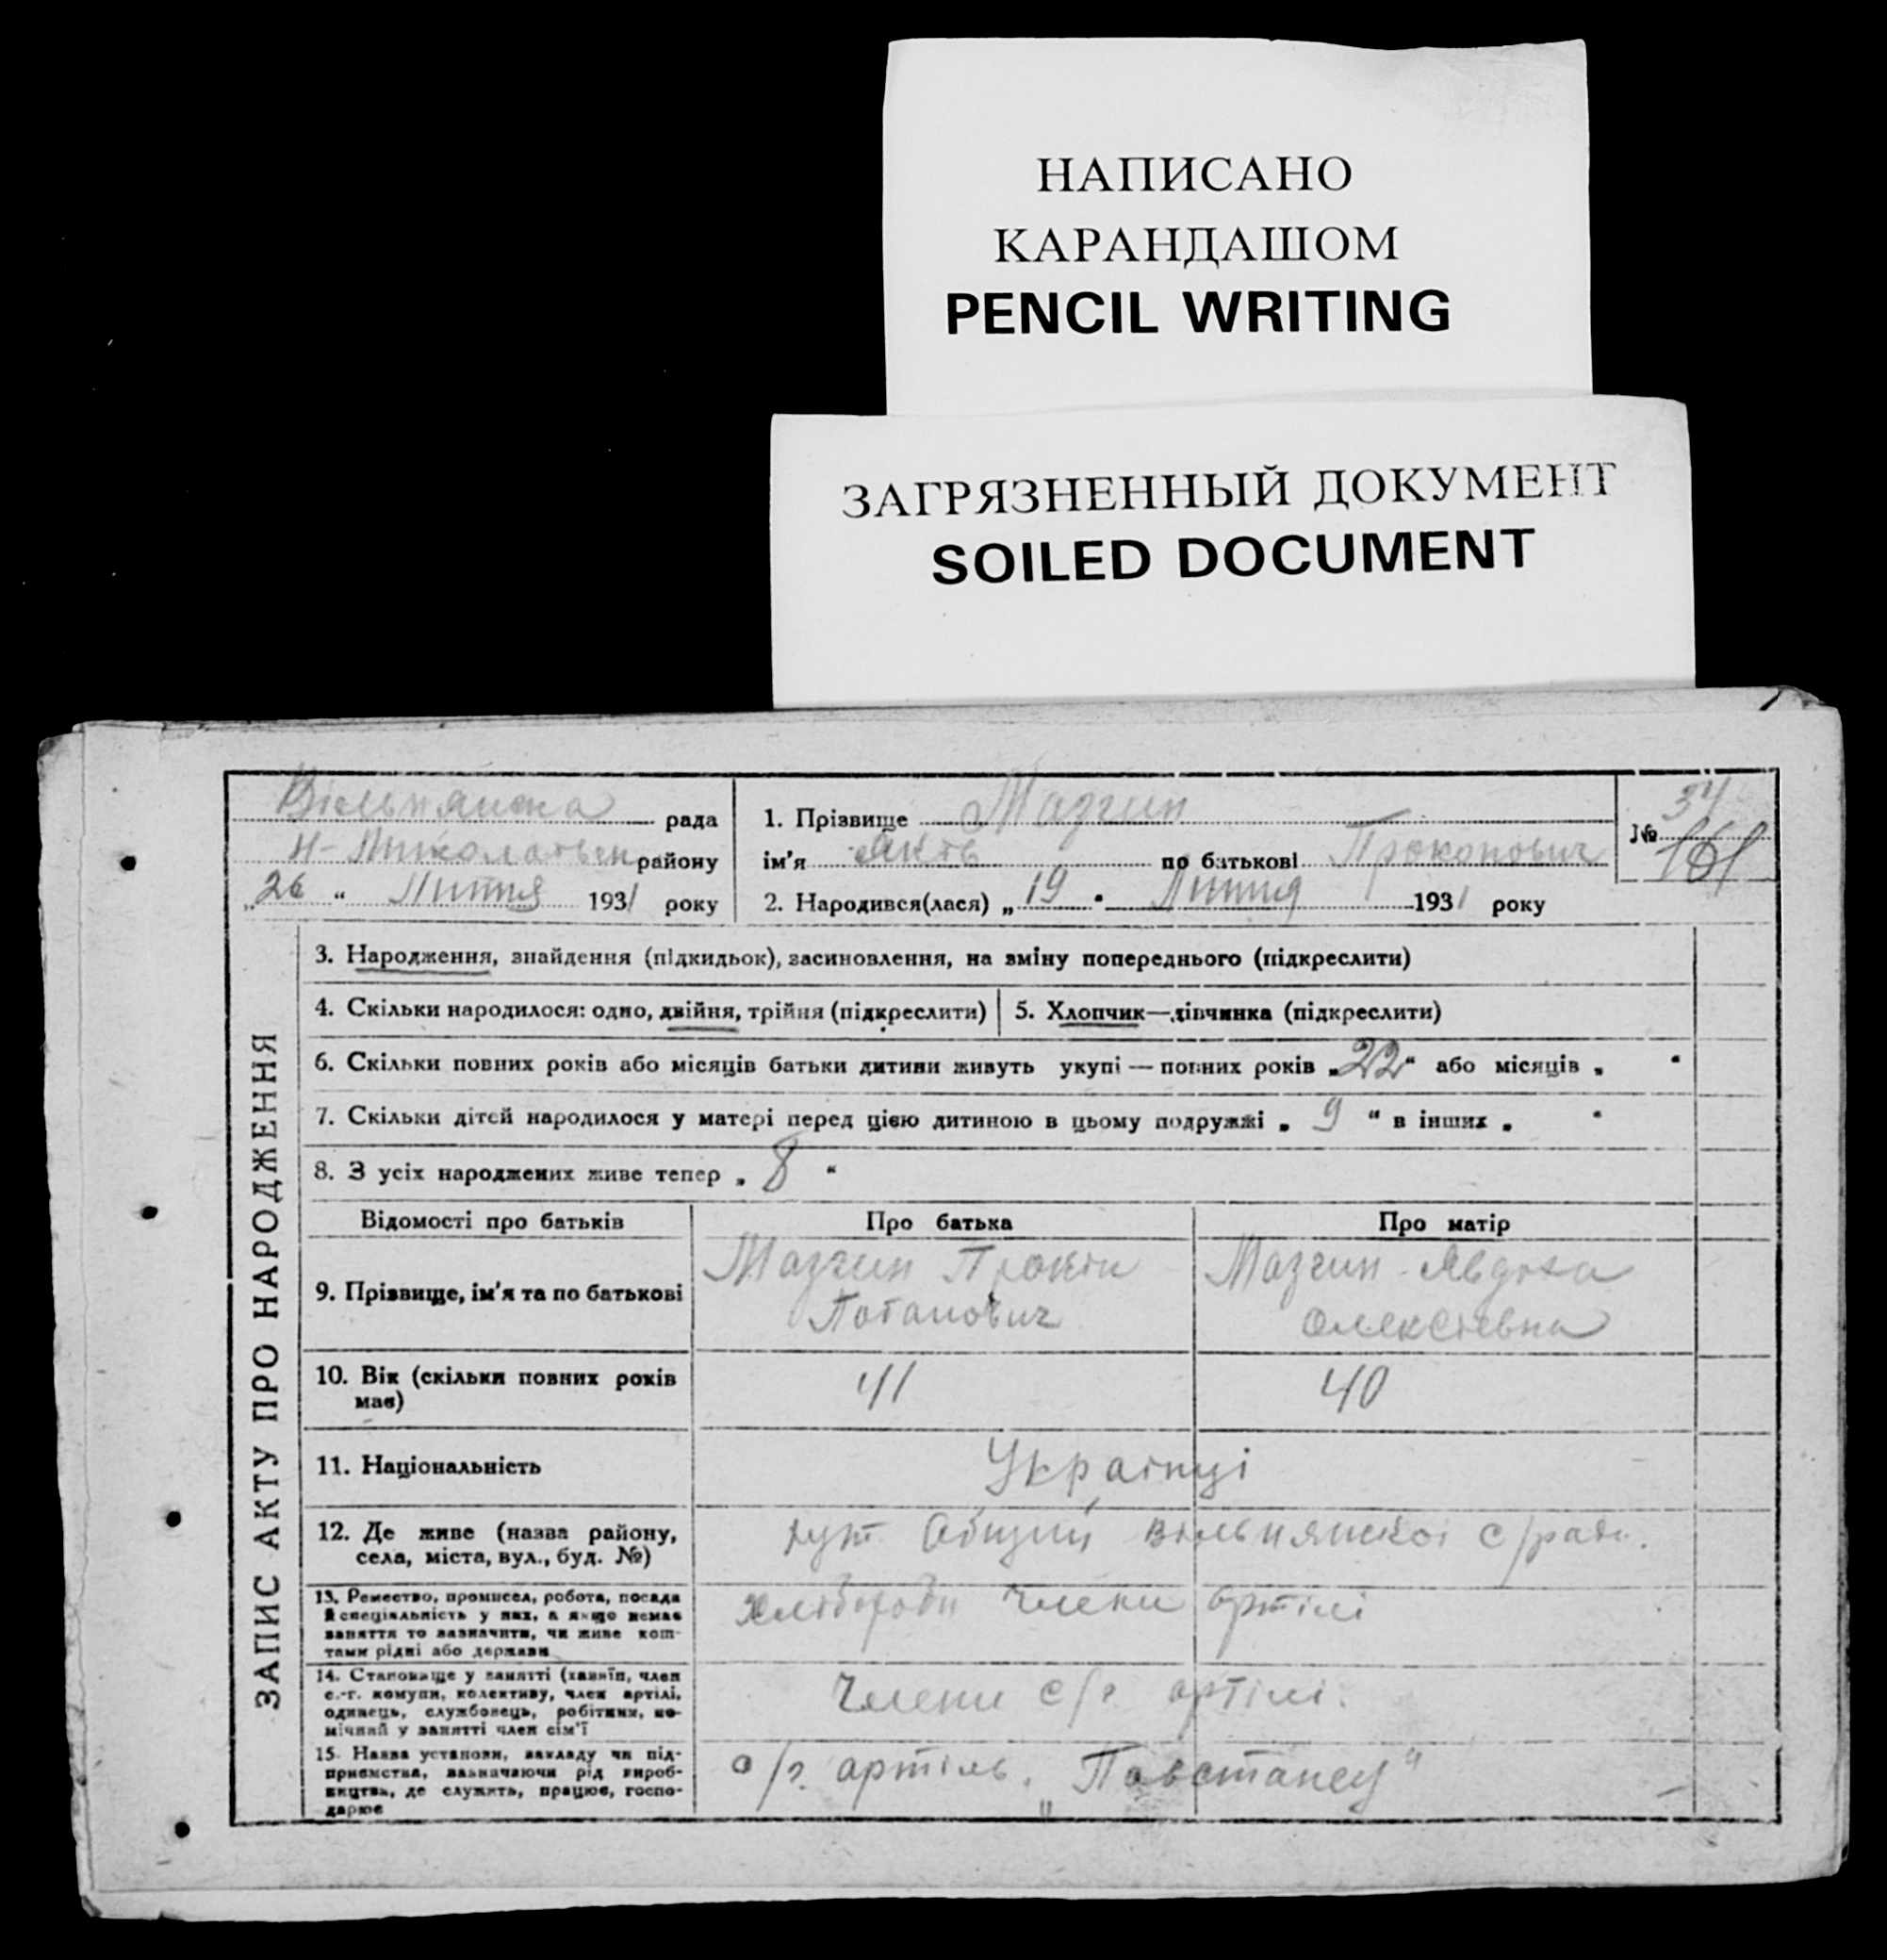 НАПИСАНО
КАРАНДАШОМ
PENCIL WRITING
ЗАГРЯЗНЕННЫЙ ДОКУМЕНТ
SOILED DOCUMENT
ЗАПИС АКТУ ПРО НАРОДЖЕННЯ
Вільнянська рада
Н-Миколаївськ району
„26 “ Липня 1931 року
1. Прізвище Мазгин
ім'я Яків по батькові Прокопович
2. Народився(лася) „19 “ Липня 1931 року
34
№ 161
3. Народження, знайдення (підкидьок), засиновлення, на зміну попереднього (підкреслити)
4. Скільки народилося: одно, двійня, трійня (підкреслити)
5. Хлопчик—дівчинка (підкреслити)
6. Скільки повних років або місяців батьки дитини живуть укупі — повних років „22“ або місяців „ “
7. Скільки дітей народилося у матері перед цією дитиною в цьому подружжі „ 9 “ в інших „ “
8. З усіх народжених живе тепер „ 8 “
Відомості про батьків Про батька Про матір
9. Прізвище, ім'я та по батькові
Мазгин Прокіп
Потапович
Мазгин Явдоха
Олексіевна
10. Вік (скільки повних років
має)
41 40
11. Національність
Українці
12. Де живе (назва району,
села, міста, вул., буд. №)
хут. Общий Вільнянської с/ради.
13. Ремество, промисел, робота, посада
й спеціяльність у них, а якщо немає
заняття то зазначити, чи живе кош-
тами рідні або держави
хлібороби члени артілі
14. Становище у занятті (хазяїн, член
с.-г. комуни, колективу, член артілі,
одинець, службовець, робітник, по-
мічний у занятті член сім'ї
Члени с/г артілі.
15. Назва установи, закладу чи під-
приємства, зазначаючи рід вироб-
ництва, де служить, працює, госпо-
дарює
с/г. артіль „Повстанец“